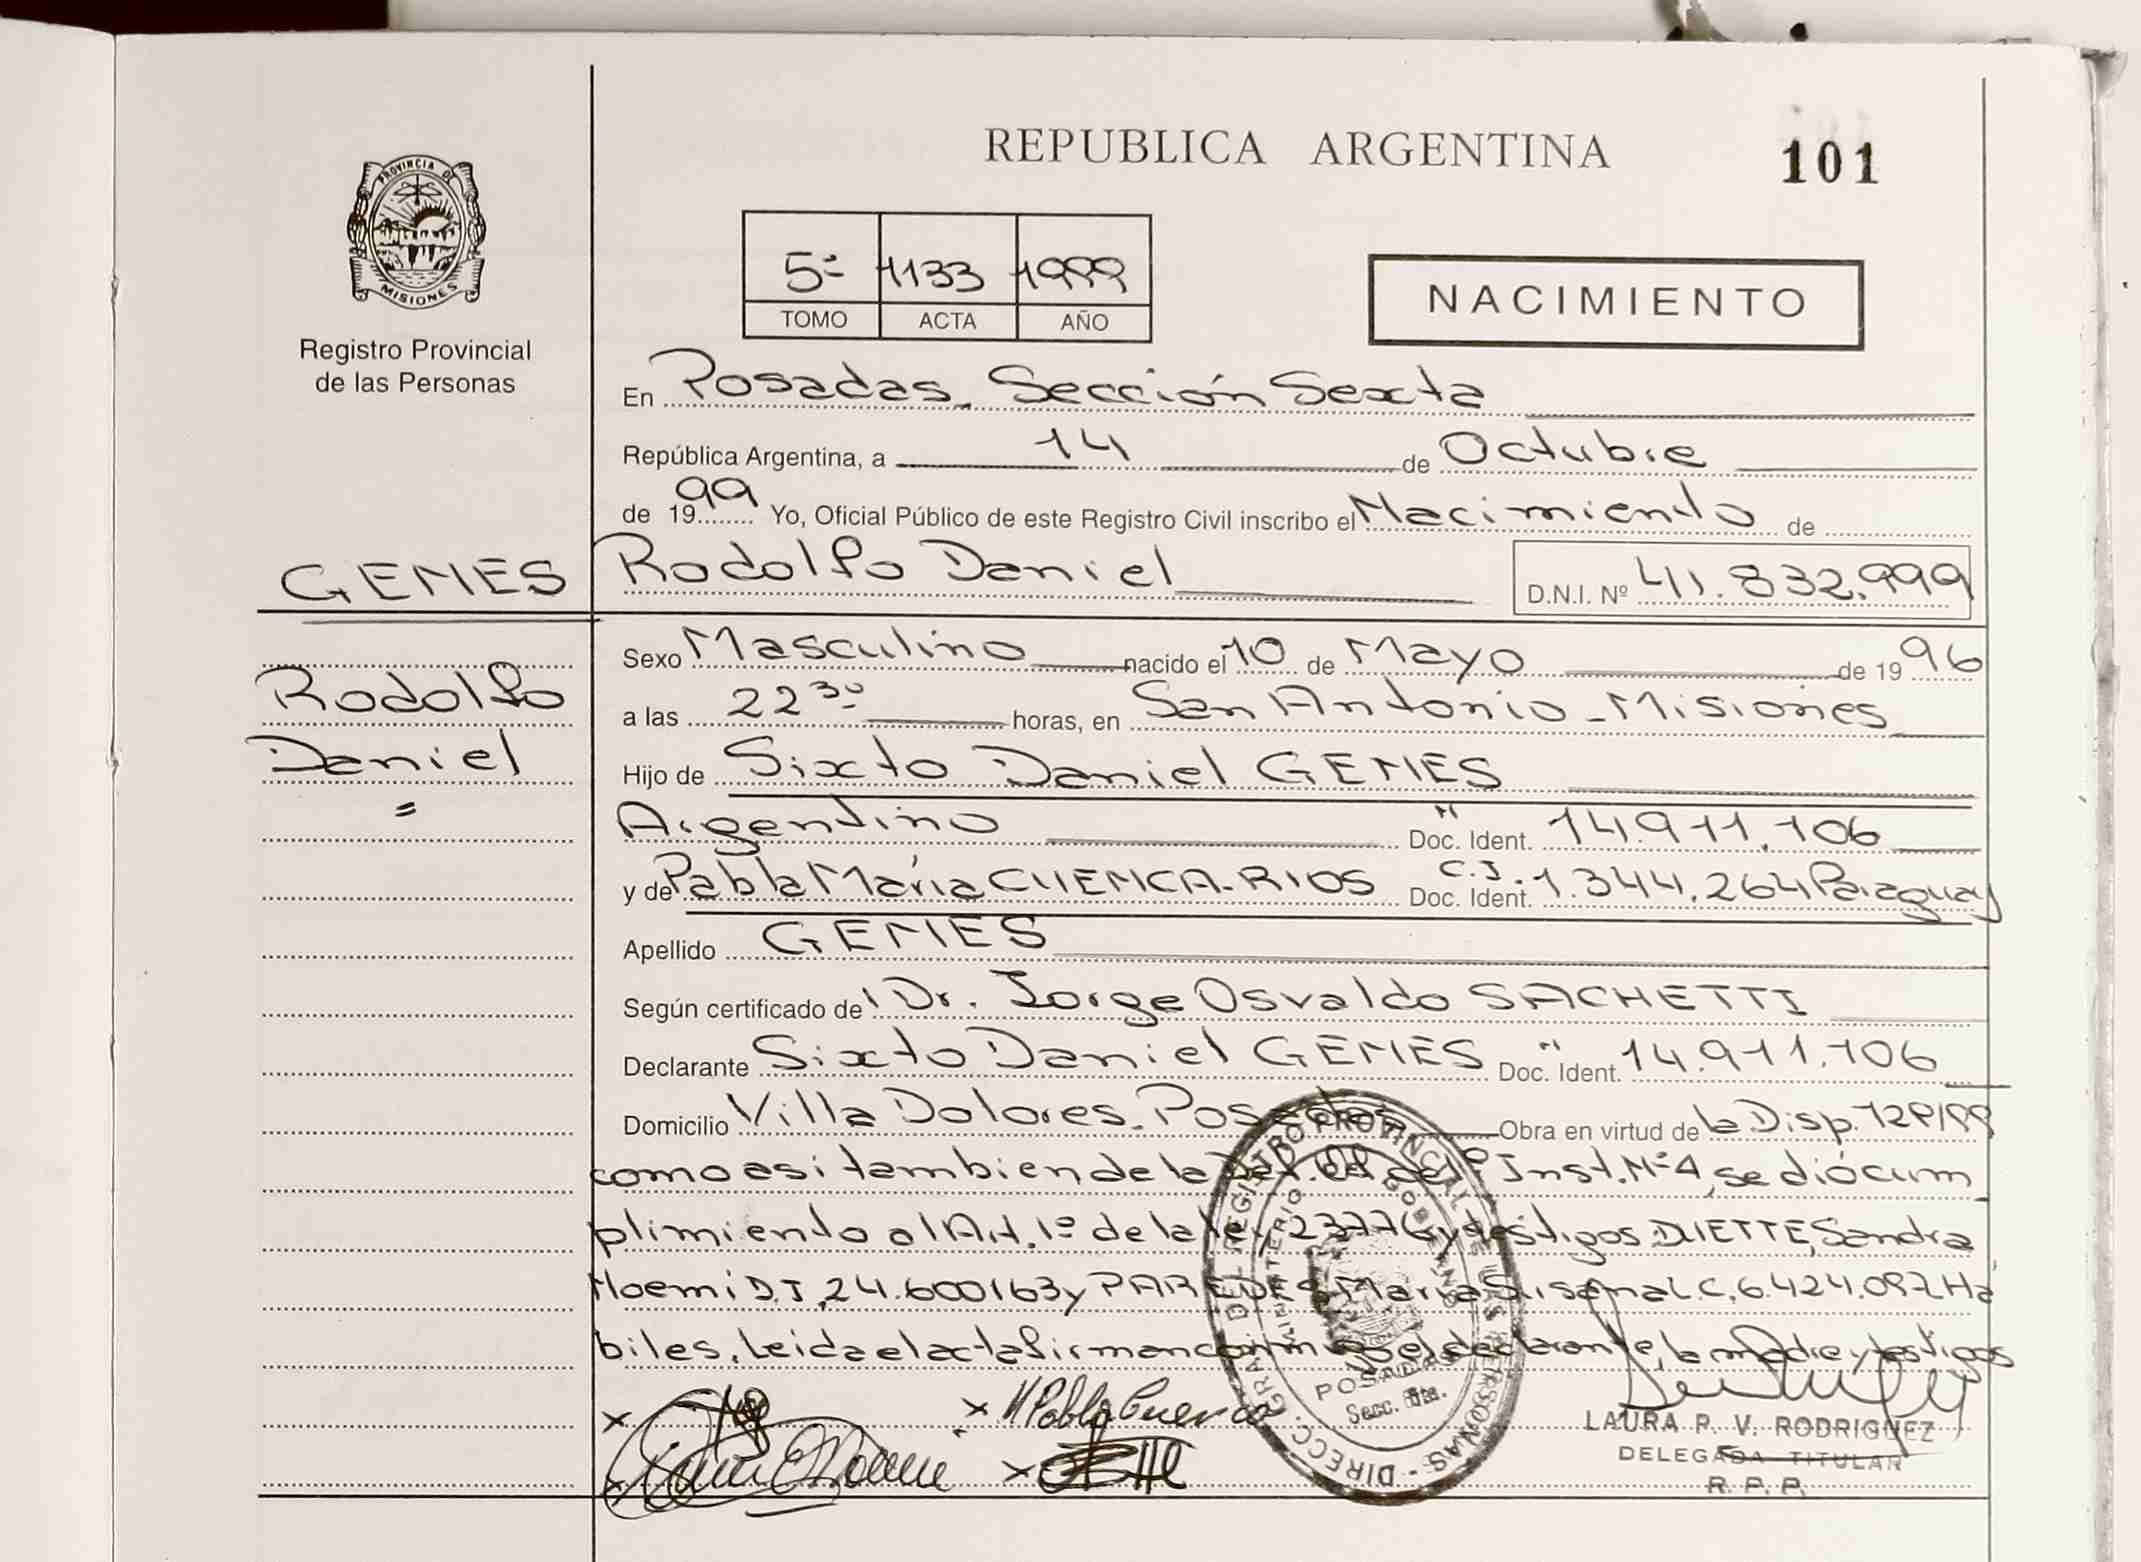 REPUBLICA ARGENTINA
101
PROVINCIA DE
MISIONES
Registro Provincial
de las Personas
5º 1133 1999
TOMO ACTA AÑO
NACIMIENTO
En Posadas, Sección Sexta
República Argentina, a 14 de Octubre
de 1999 Yo, Oficial Público de este Registro Civil inscribo el Nacimiento de
GENES Rodolfo Daniel D.N.I. Nº 41.832.999
Sexo Masculino nacido el 10 de Mayo de 1996
Rodolfo
a las 22 30 horas, en San Antonio - Misiones
Daniel
Hijo de Sixto Daniel GENES
Argentino Doc. Ident. 14.911.106
y de Pabla María CUENCA-RIOS C.I. Doc. Ident. 1.344.264 Paraguay
Apellido GENES
Según certificado de Dr. Jorge Osvaldo SACHETTI
Declarante Sixto Daniel GENES Doc. Ident. 14.911.106
Domicilio Villa Dolores. Posadas Obra en virtud de la Disp. 129/99
como asi tambien de la de Inst. Nº 4, se dió cum
plimiento al Art. 1º de la 23776 y testigos: DUETTE, Sandra
Noemi D.I. 24.600163 y PAREDES Maria Susana L.C. 6.424.097 Há
biles. Leida el acta firman conmigo el declarante, la madre y testigos
M Pabla Cuenca
DIRECC. GRAL. DEL REGISTRO PROVINCIAL DE LAS PERSONAS
MINISTERIO GOBIERNO
POSADAS
Secc. 6ta.
LAURA P. V. RODRIGUEZ
DELEGADA TITULAR
R. P. P.